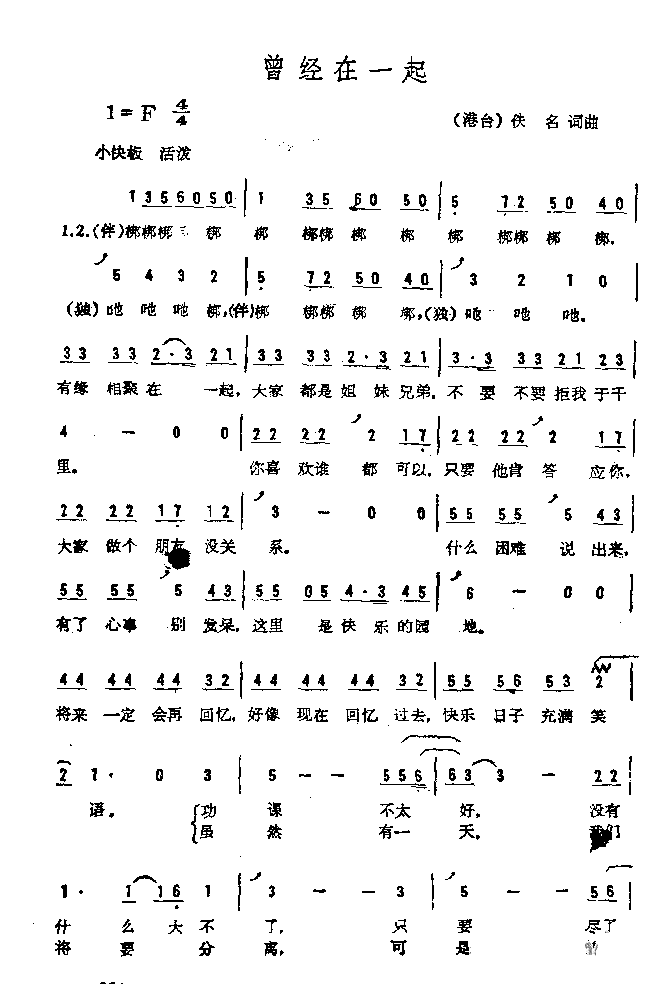 曾经在一起
1=F 4/4
(港台)佚 名 词曲
小快板 活泼
1 3 5 6 0 5 0 | 1 3 5 6 0 5 0 | 5 7 2 5 0 4 0 |
1.2.(伴)梆梆梆 梆 梆 梆梆 梆 梆 梆 梆梆 梆 梆,
5 4 3 2 | 5 7 2 5 0 4 0 | 3 2 1 0 |
(独)吔 吔 吔 梆,(伴)梆 梆梆 梆 梆,(独)吔 吔 吔.
3 3 3 3 2 · 3 2 1 | 3 3 3 3 2 · 3 2 1 | 3 · 3 3 3 2 3 2 1 |
有缘 相聚 在 一起, 大家 都是 姐 妹 兄弟, 不 要 不要 拒我 于千
4 — 0 0 | 2 2 2 2 2 1 7 | 2 2 2 2 2 1 7 |
里。 你喜 欢谁 都 可以, 只要 他肯 答 应你,
2 2 2 2 1 7 1 2 | 3 — 0 0 | 5 5 5 5 5 4 3 |
大家 做个 朋友 没关 系。 什么 困难 说 出来,
5 5 5 5 5 4 3 | 5 5 0 5 4 · 3 4 5 | 6 — 0 0 |
有了 心事 别 发呆, 这里 是 快 乐 的园 地。
4 4 4 4 4 4 3 2 | 4 4 4 4 4 4 3 2 | 5 5 5 6 5 3 2 |
将来 一定 会再 回忆, 好像 现在 回忆 过去, 快乐 日子 充满 笑
2 1 · 0 3 | 5 — — 5 5 6 | 6 3 3 — 2 2 |
语。 功 课 不太 好, 没有
虽 然 有一 天, 我们
1 · 1 1 6 1 | 3 — — 3 | 5 — — 5 6 |
什 么 大 不 了, 只 要 尽了
将 要 分 离, 可 是